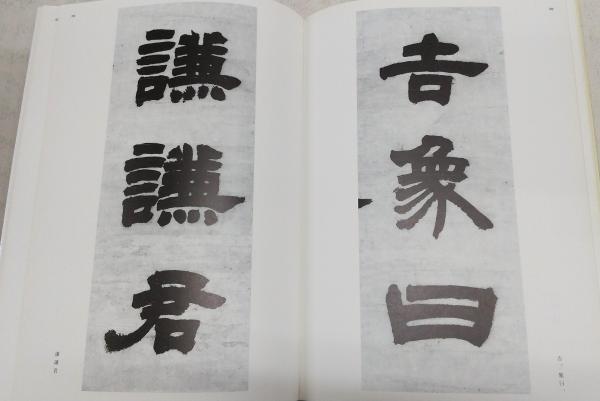 吉象曰
謙謙君
吉。象曰、
謙謙君